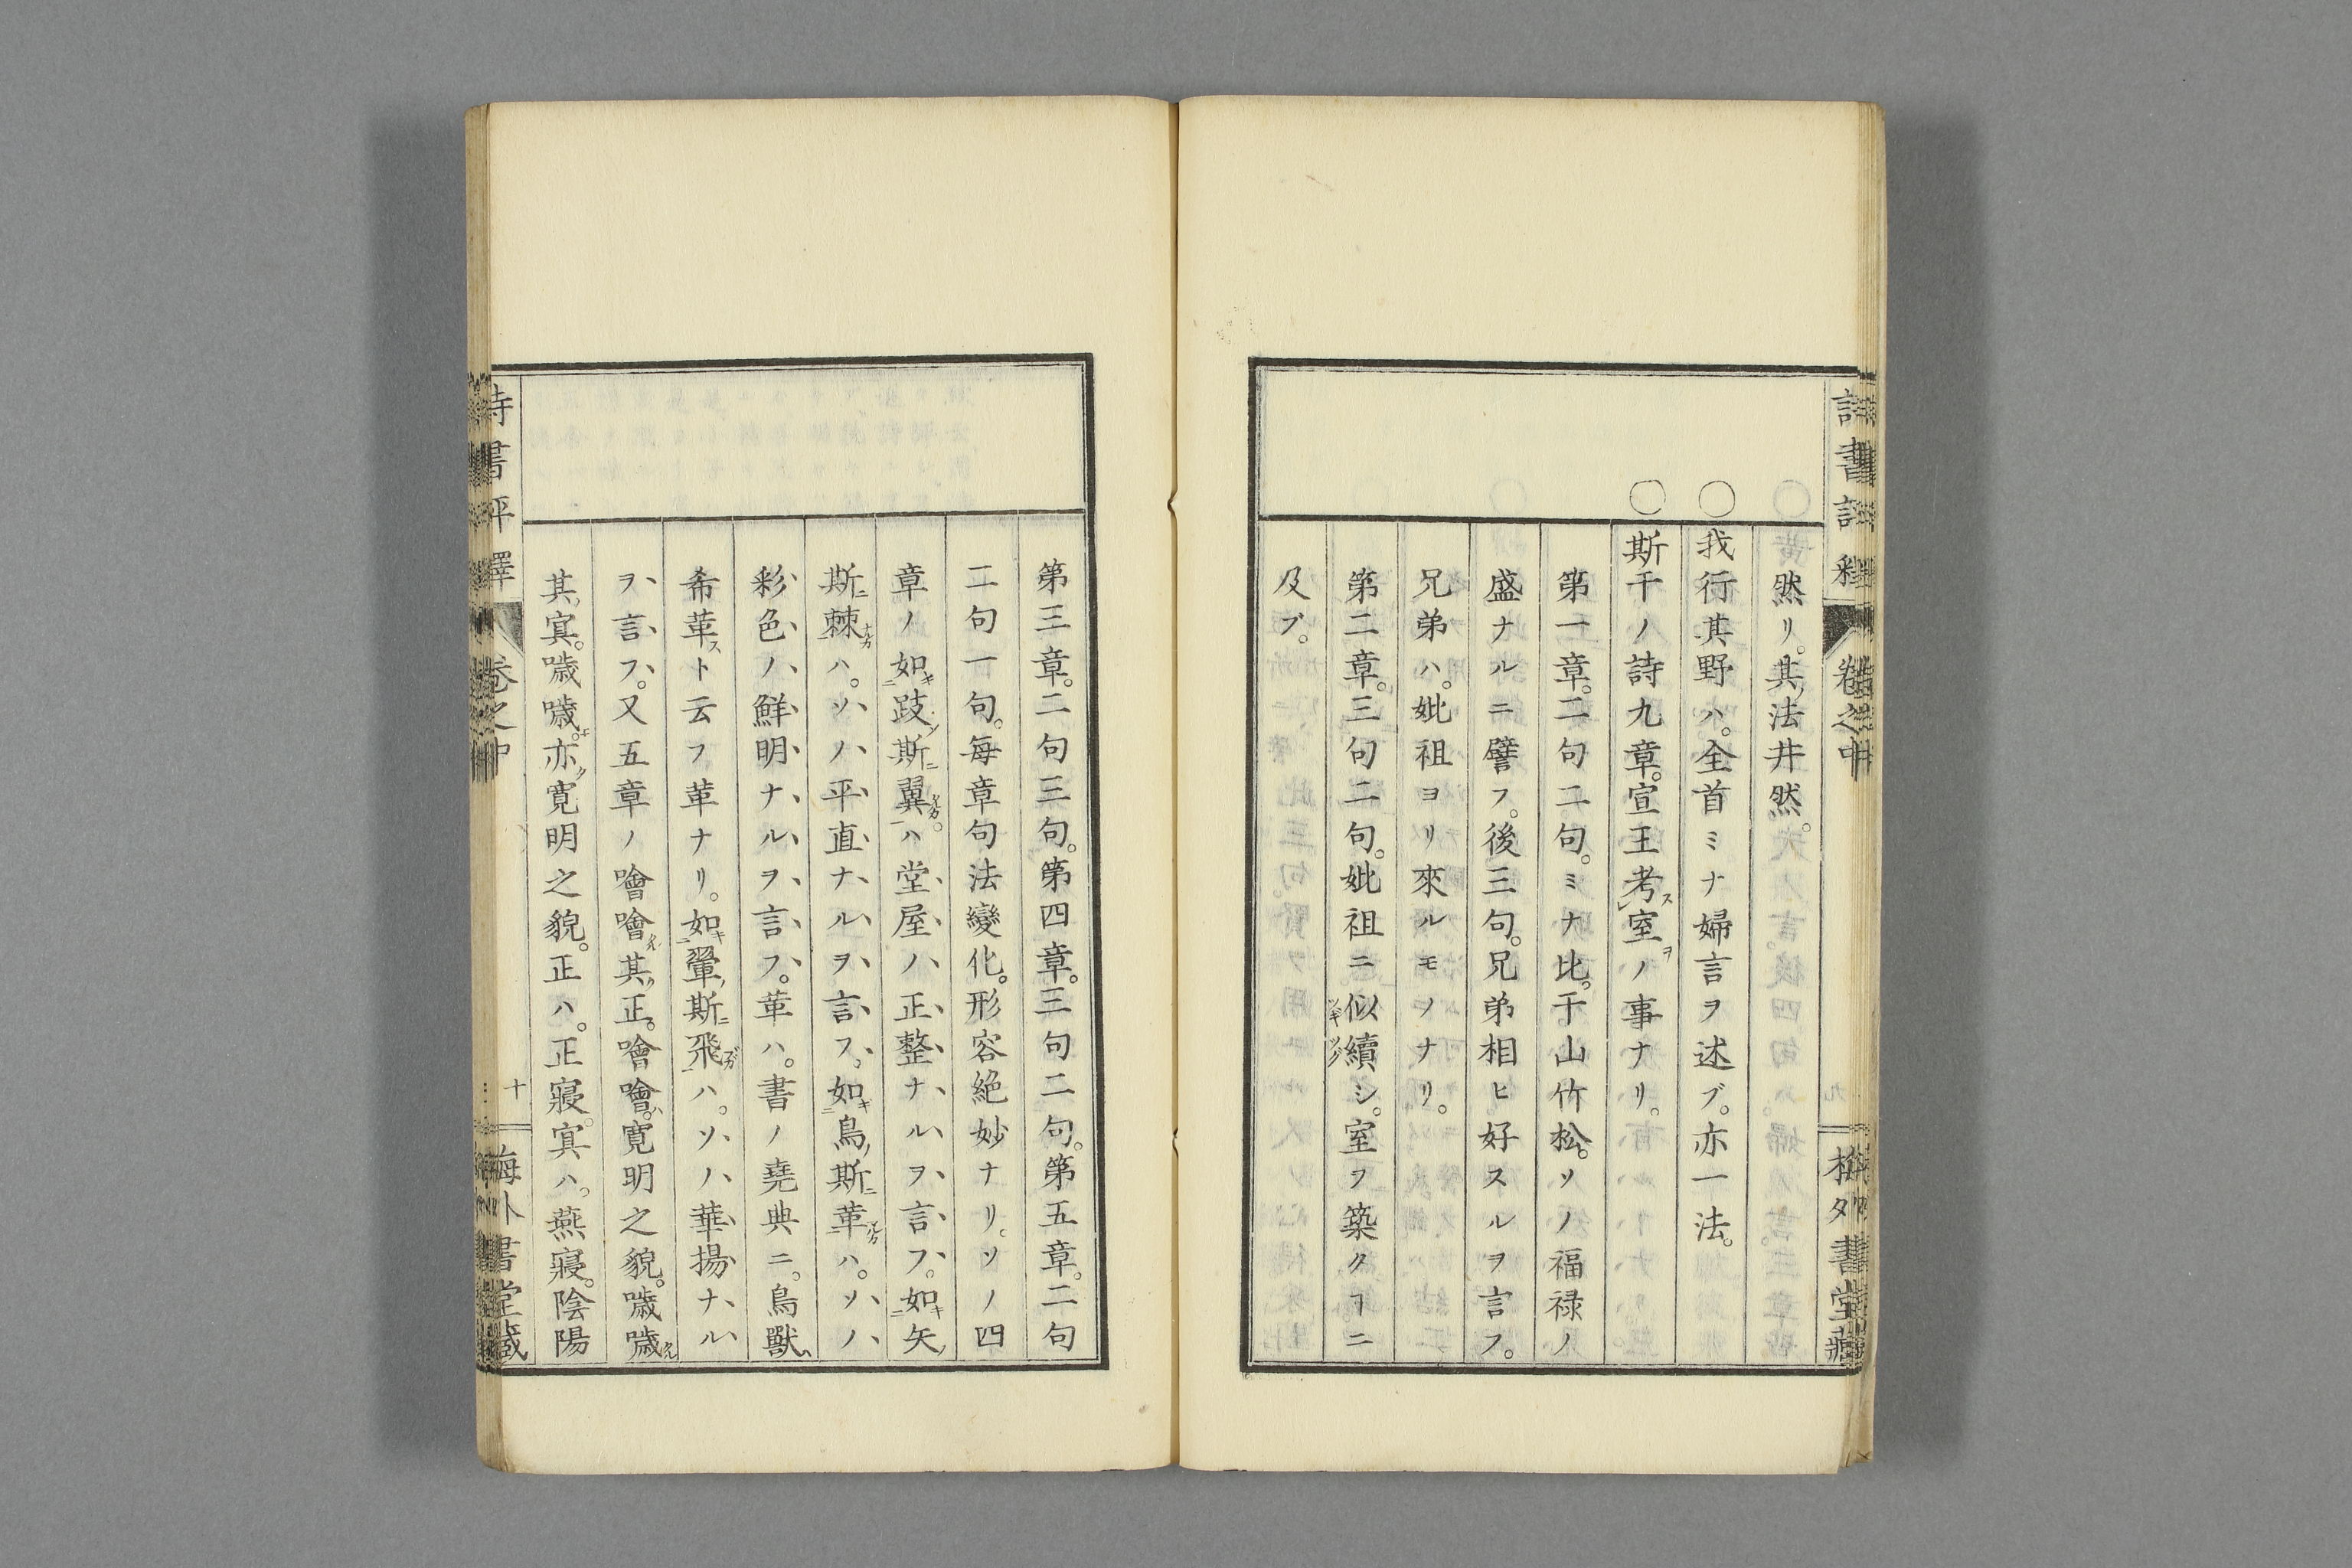 然リ。其法井然。
○我行其野ハ。全首ミナ婦言ヲ述ブ。亦一法。
○斯干ノ詩九章。宣王考室ノ事ナリ。
第一章。二句二句。ミナ比。于山竹松。ソノ福禄ノ
盛ナルニ譬フ。後三句。兄弟相ヒ好スルヲ言フ。
兄弟ハ。妣祖ヨリ來ルモノナリ。
第二章。三句二句。妣祖ニ似續シ。室ヲ築クヿニ
及ブ。
第三章。二句三句。第四章。三句二句。第五章。二句
二句一句。每章句法變化。形容絶妙ナリ。ソノ四
章ノ如跂斯翼。ハ堂屋ノ正整ナルヲ言フ。如矢
斯棘ハ。ソノ平直ナルヲ言フ。如鳥斯革ハ。ソノ
彩色ノ鮮明ナルヲ言フ。革ハ。書ノ堯典ニ。鳥獸
希革ト云フ革ナリ。如翬斯飛ハ。ソノ華揚ナル
ヲ言フ。又五章ノ噲噲其正。噲噲。寛明之貌。噦噦
其寘。噦噦。亦寛明之貌。正ハ。正寢。寘ハ。燕寢。陰陽
詩書評釋
卷之中
十
書堂藏